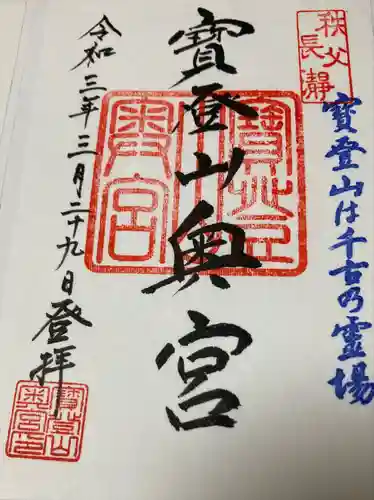 秩父
長瀞
寶登山は千古の霊場
寶登山奥宮
令和三年三月二十九日登拝
寶登山
奥宮
寶登山
奥宮印